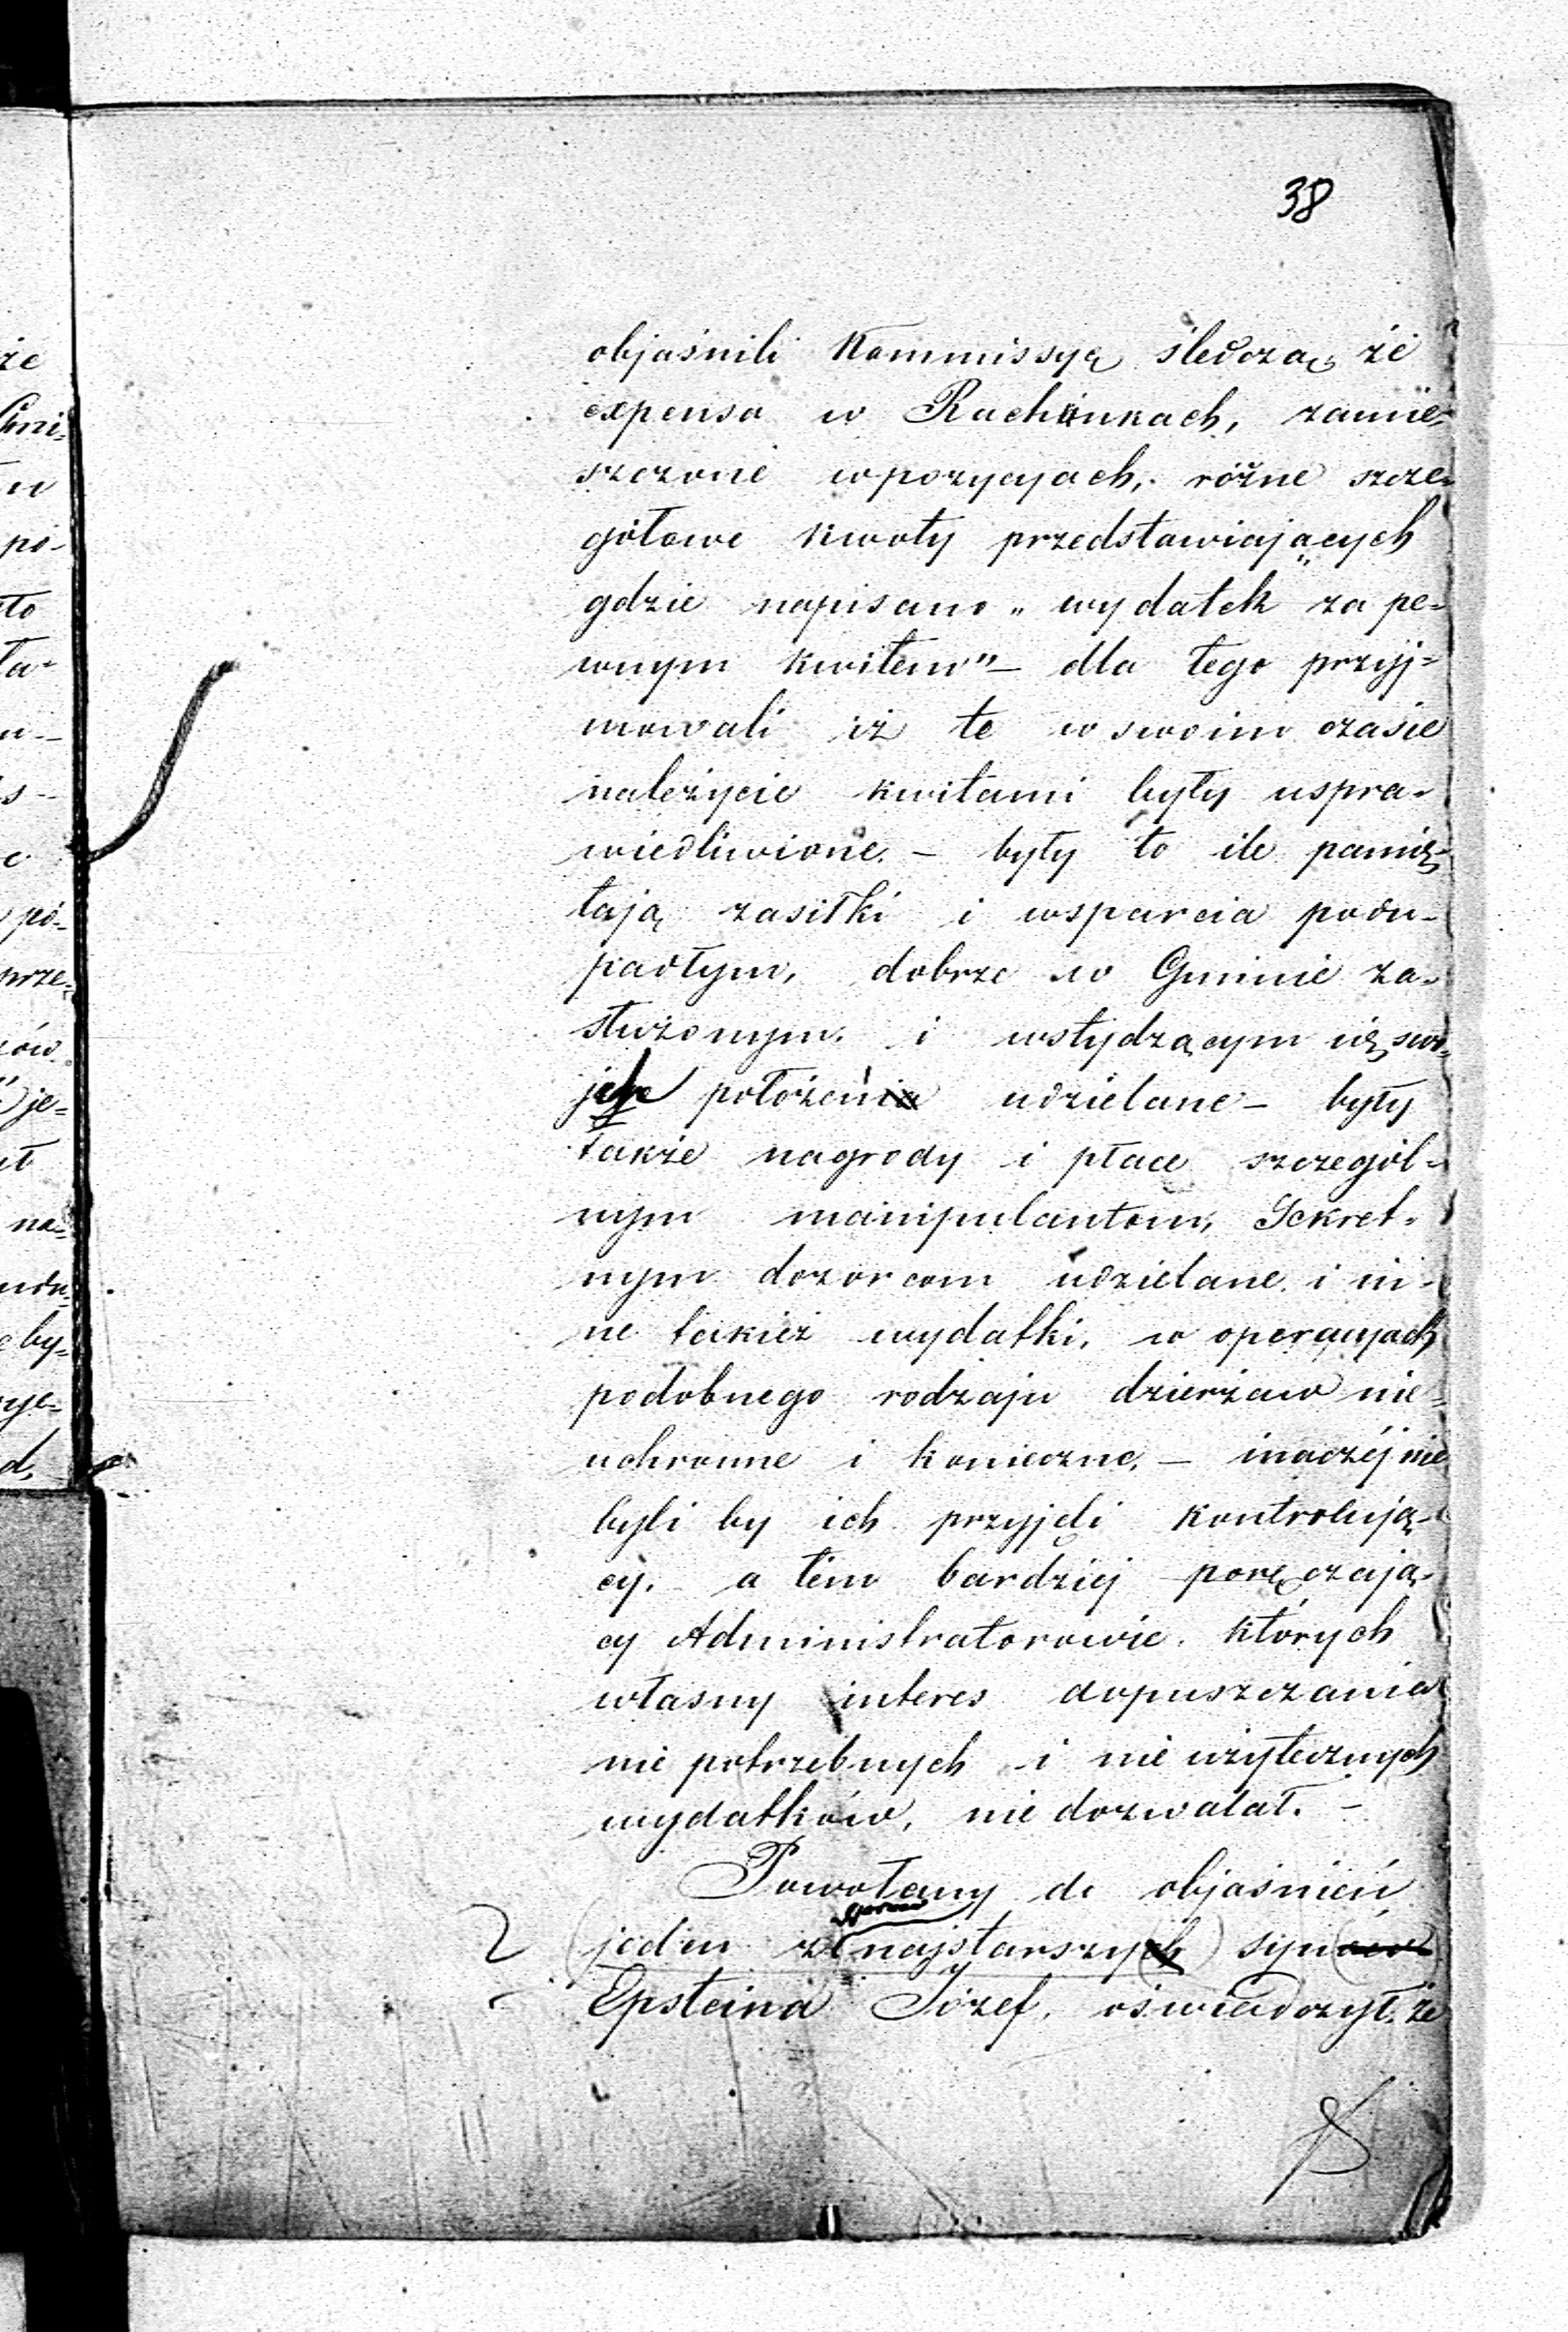 38
objaśnili Kommissyą śledczą, że
expensa w Rachunkach, zamie-
szczone w pozycyach, różne szcze-
gółowe kwoty przedstawiających
gdzie napisano „wydatek za pe-
wnym kwitem" – dla tego przyj-
mowali iż te w swoim czasie
należycie kwitami były uspra-
wiedliwione. – były to ile pamię-
tają zasiłki i wsparcia podu-
padłym, dobrze w Gminie za-
służonym. i wstydzącym się swo-
jego położenia udzielane – były
także nagrody i płace szczegól-
nym manipulantom, Sekret-
nym dozorcom udzielane. i in-
ne takież wydatki, w operacyjach
podobnego rodzaju dzierżaw nie-
uchronne i konieczne, – inaczéj nie
byli by ich przyjęli kontrolują-
cy. a tem bardziej poręczają-
cy Administratorowie. których
własny interes dopuszczania
nie potrzebnych i nie użytecznych
wydatków, nie dozwalał. –
Powołany do objaśnień
2 (jeden z (najstarszych) synów)
Epsteina Józef, oświadczył, że
że
po-
je-
na-
by-